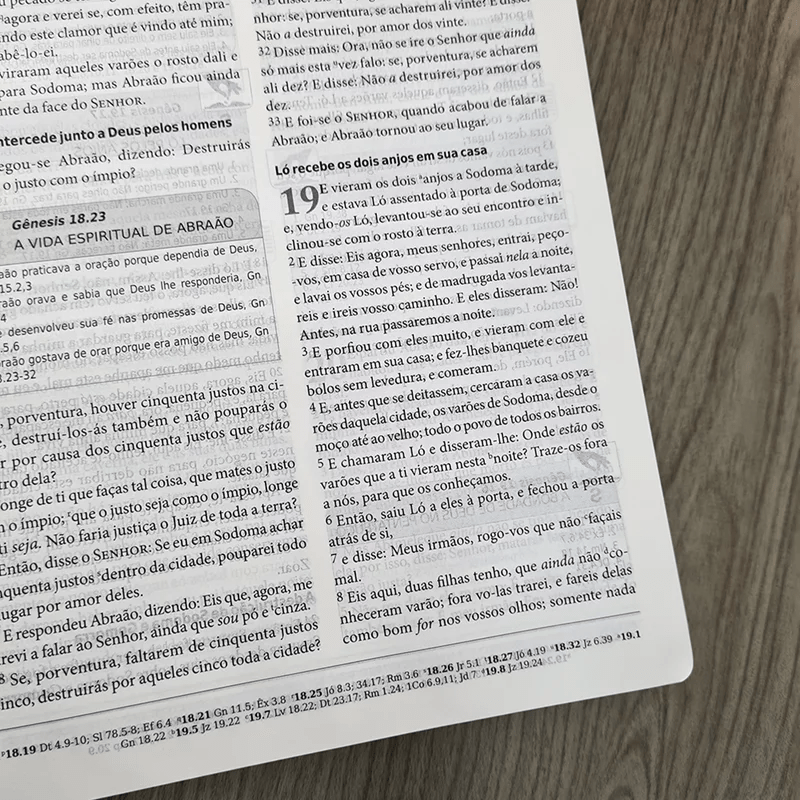 agora e verei se, com efeito, têm pra-
ndo este clamor que é vindo até mim;
abê-lo-ei.
viraram aqueles varões o rosto dali e
para Sodoma; mas Abraão ficou ainda
nte da face do SENHOR.
ntercede junto a Deus pelos homens
egou-se Abraão, dizendo: Destruirás
o justo com o ímpio?
Gênesis 18.23
A VIDA ESPIRITUAL DE ABRAÃO
aão praticava a oração porque dependia de Deus,
15.2,3
raão orava e sabia que Deus lhe responderia, Gn
4
e desenvolveu sua fé nas promessas de Deus, Gn
.5,6
braão gostava de orar porque era amigo de Deus, Gn
8.23-32
, porventura, houver cinquenta justos na ci-
e, destruí-los-ás também e não pouparás o
r por causa dos cinquenta justos que estão
tro dela?
onge de ti que faças tal coisa, que mates o justo
n o ímpio; que o justo seja como o ímpio, longe
ti seja. Não faria justiça o Juiz de toda a terra?
Então, disse o SENHOR: Se eu em Sodoma achar
nquenta justos dentro da cidade, pouparei todo
ugar por amor deles.
E respondeu Abraão, dizendo: Eis que, agora, me
revi a falar ao Senhor, ainda que sou pó e cinza.
8 Se, porventura, faltarem de cinquenta justos
inco, destruirás por aqueles cinco toda a cidade?
nhor: se, porventura, se acharem ali vinte? E disse:
Não a destruirei, por amor dos vinte.
32 Disse mais: Ora, não se ire o Senhor que ainda
só mais esta vez falo: se, porventura, se acharem
ali dez? E disse: Não a destruirei, por amor dos
dez.
33 E foi-se o SENHOR, quando acabou de falar a
Abraão; e Abraão tornou ao seu lugar.
Ló recebe os dois anjos em sua casa
19 E vieram os dois anjos a Sodoma à tarde,
e estava Ló assentado à porta de Sodoma;
e, vendo-os Ló, levantou-se ao seu encontro e in-
clinou-se com o rosto à terra.
2 E disse: Eis agora, meus senhores, entrai, peço-
-vos, em casa de vosso servo, e passai nela a noite,
e lavai os vossos pés; e de madrugada vos levanta-
reis e ireis vosso caminho. E eles disseram: Não!
Antes, na rua passaremos a noite.
3 E porfiou com eles muito, e vieram com ele e
entraram em sua casa; e fez-lhes banquete e cozeu
bolos sem levedura, e comeram.
4 E, antes que se deitassem, cercaram a casa os va-
rões daquela cidade, os varões de Sodoma, desde o
moço até ao velho; todo o povo de todos os bairros.
5 E chamaram Ló e disseram-lhe: Onde estão os
varões que a ti vieram nesta noite? Traze-os fora
a nós, para que os conheçamos.
6 Então, saiu Ló a eles à porta, e fechou a porta
atrás de si,
7 e disse: Meus irmãos, rogo-vos que não façais
mal.
8 Eis aqui, duas filhas tenho, que ainda não co-
nheceram varão; fora vo-las trarei, e fareis delas
como bom for nos vossos olhos; somente nada
18.19 Dt 4.9-10; Sl 78.5-8; Ef 6.4 18.21 Gn 11.5; Êx 3.8 18.25 Jó 8.3; 34.17; Rm 3.6 18.26 Jr 5.1 18.27 Jó 4.19 18.32 Jz 6.39 19.1
Gn 18.22 19.5 Jz 19.22 19.7 Lv 18.22; Dt 23.17; Rm 1.24; 1Co 6.9,11; Jd 7 19.8 Jz 19.24